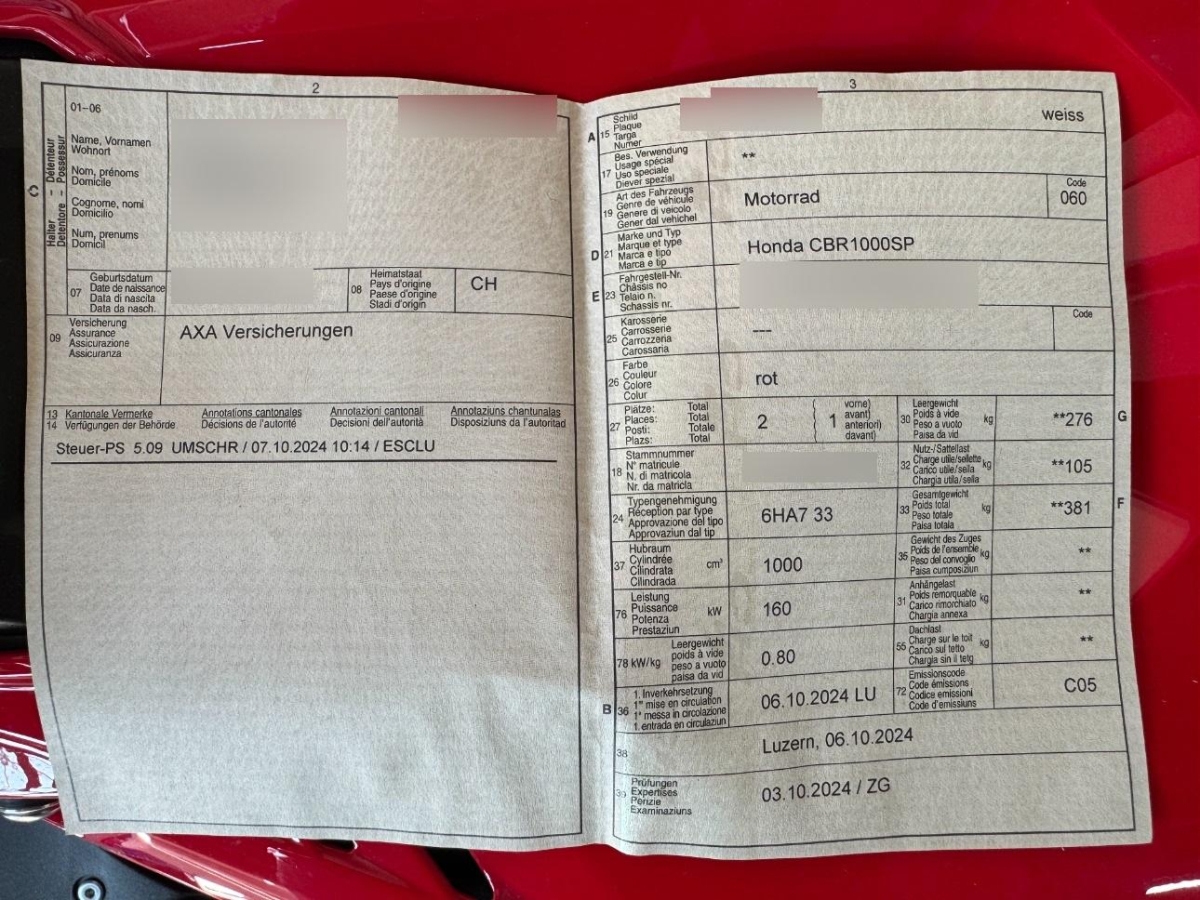 2
C
Halter - Détenteur
Detentore - Possessur
01–06
Name, Vornamen
Wohnort
Nom, prénoms
Domicile
Cognome, nomi
Domicilio
Num, prenums
Domicil
07
Geburtsdatum
Date de naissance
Data di nascita
Data da nasch.
08
Heimatstaat
Pays d'origine
Paese d'origine
Stadi d'origin
CH
09
Versicherung
Assurance
Assicurazione
Assicuranza
AXA Versicherungen
13 Kantonale Vermerke Annotations cantonales Annotazioni cantonali Annotaziuns chantunalas
14 Verfügungen der Behörde Décisions de l'autorité Decisioni dell'autorità Disposiziuns da l'autoritad
Steuer-PS 5.09 UMSCHR / 07.10.2024 10:14 / ESCLU
3
A 15
Schild
Plaque
Targa
Numer
weiss
17
Bes. Verwendung
Usage spécial
Uso speciale
Diever spezial
**
19
Art des Fahrzeugs
Genre de véhicule
Genere di veicolo
Gener dal vehichel
Motorrad
Code
060
D 21
Marke und Typ
Marque et type
Marca e tipo
Marca e tip
Honda CBR1000SP
E 23
Fahrgestell-Nr.
Châssis no
Telaio n.
Schassis nr.
25
Karosserie
Carrosserie
Carrozzeria
Carossaria
---
Code
26
Farbe
Couleur
Colore
Colur
rot
27
Plätze: Total
Places: Total
Posti: Totale
Plazs: Total
2
1
vorne)
avant)
anteriori)
davant)
30
Leergewicht
Poids à vide
Peso a vuoto
Paisa da vid
kg
**276
G
18
Stammnummer
N° matricule
N. di matricola
Nr. da matricla
32
Nutz-/Sattellast
Charge utile/sellette
Carico utile/sella
Chargia utila/sella
kg
**105
24
Typengenehmigung
Réception par type
Approvazione del tipo
Approvaziun dal tip
6HA7 33
33
Gesamtgewicht
Poids total
Peso totale
Paisa totala
kg
**381
F
37
Hubraum
Cylindrée
Cilindrata
Cilindrada
cm³
1000
35
Gewicht des Zuges
Poids de l'ensemble
Peso del convoglio
Paisa cumposiziun
kg
**
76
Leistung
Puissance
Potenza
Prestaziun
kW
160
31
Anhängelast
Poids remorquable
Carico rimorchiato
Chargia annexa
kg
**
78 kW/kg
Leergewicht
poids à vide
peso a vuoto
paisa da vid
0.80
55
Dachlast
Charge sur le toit
Carico sul tetto
Chargia sin il tetg
kg
**
B 36
1. Inverkehrsetzung
1re mise en circulation
1a messa in circolazione
1. entrada en circulaziun
06.10.2024 LU
72
Emissionscode
Code émissions
Codice emissioni
Code d'emissiuns
C05
38
Luzern, 06.10.2024
39
Prüfungen
Expertises
Perizie
Examinaziuns
03.10.2024 / ZG